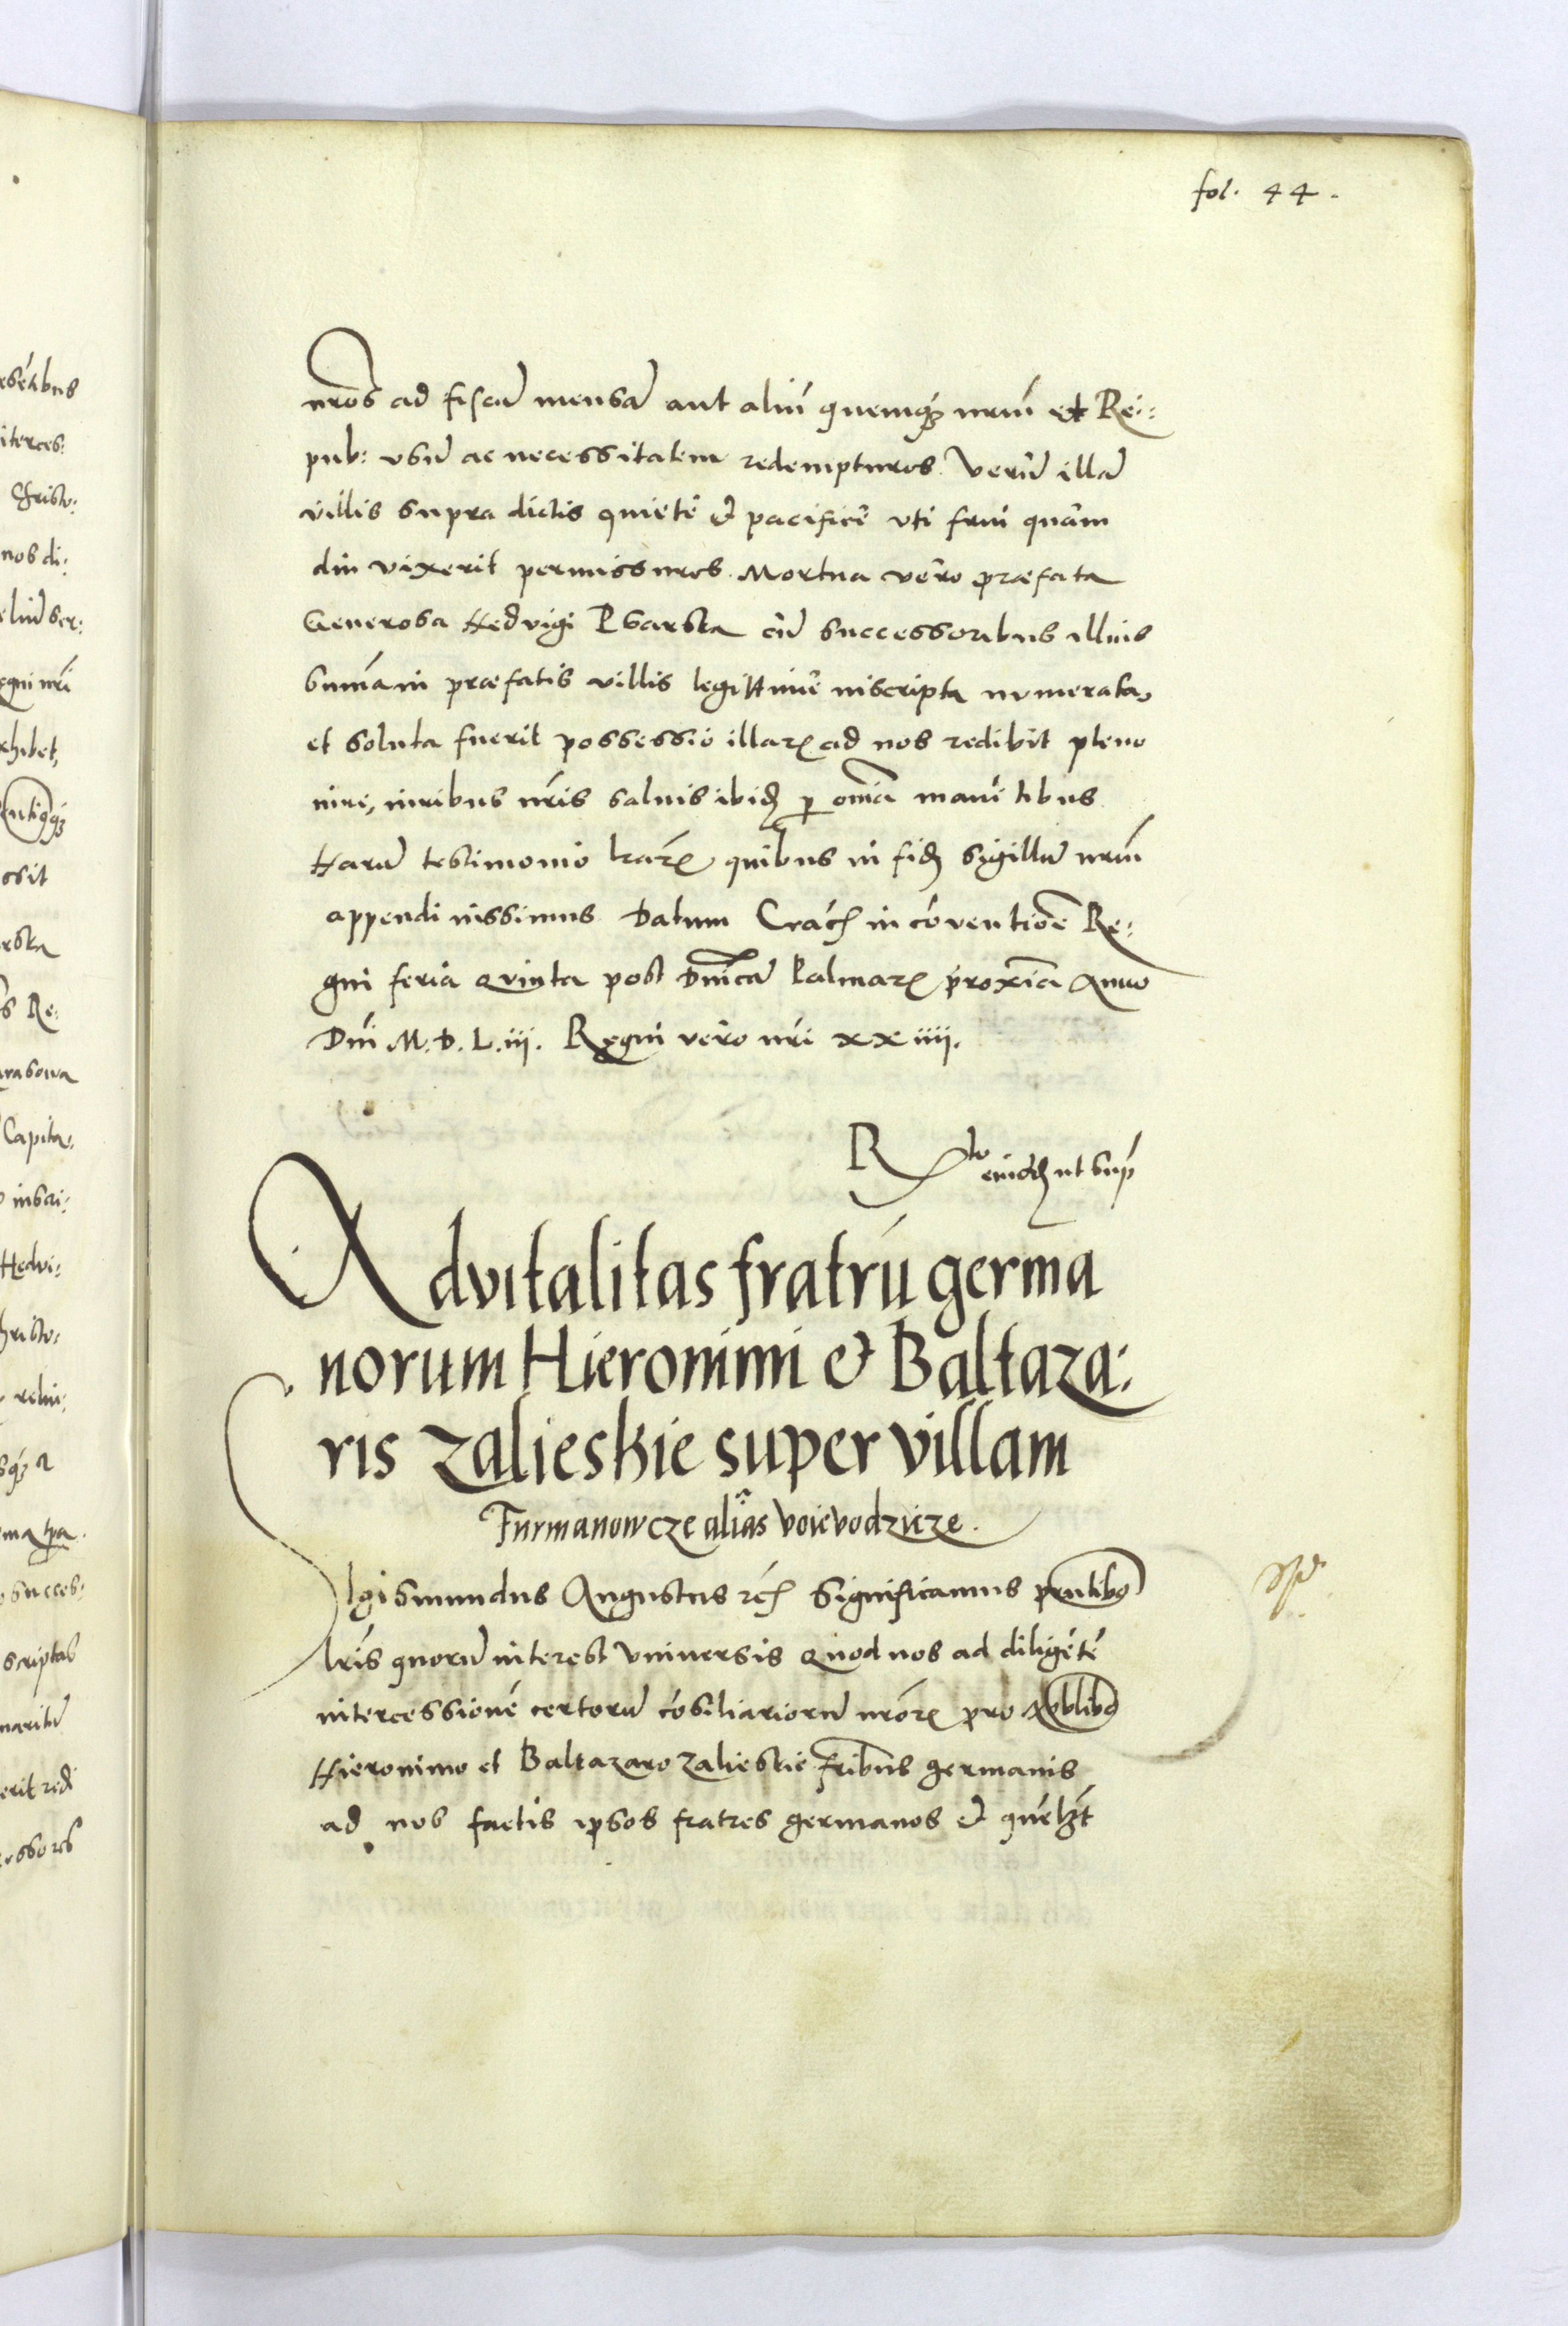 fol. 44.
nros ad fiscū mensā aut aliū quemqꝫ nrūm et Rei:
pub: vsū ac necessitatem redempturos. Verū illā
villis supra dictis quiete et pacifice vti frui quam
diu vixerit permissuros. Mortua vero præfata
Generosa Hedvigi cū successoribus illius
sum̄a in præfatis villis legittime inscripta numerata,
et soluta fuerit possessio illarꝝ ad nos redibit pleno
iure, iuribus nr̄is saluis ibidē ꝑ om̄ia manētibus
Harū testimonio lrarꝝ quibus in fidē sigillū nrūm
appendi iussimus Datum Cracę in cōventiōe Re:
gni feria quinta post Dnīcā Palmarꝝ proxīa Anno
Dnī M. D. L. iii. Regni vero nrī xx iiii.
Rto eiusdē ut sup
Advitalitas fratrū germa
norum Hieronimi et Baltaza:
ris Zalieskie super villam
Furmanowcze alias voievodzicze.
Sigismundus Augustus rēx Significamus pn̄tibꝰ
lrīs quorū interest vniversis Quod nos ad diligētē
intercessionē certorū cōsiliariorū nrōrꝝ pro Nobilibꝰ
Hieronimo et Baltazaro Zalieskie fribus germanis
ad nos factis ipsos fratres germanos et quēlꝫt